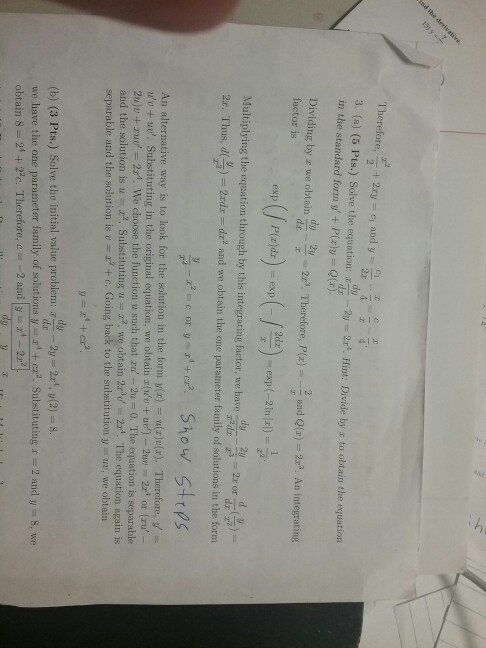 nd the derivative.
15) y =
Therefore, x²/2 + 2xy = c₁ and y = c₁/2x − x/4 = c/x − x/4.
3. (a) (5 Pts.) Solve the equation: x dy/dx − 2y = 2x⁴. Hint: Divide by x to obtain the equation
in the standard form y′ + P(x)y = Q(x).
Dividing by x we obtain dy/dx − 2y/x = 2x³. Therefore, P(x) = −2/x and Q(x) = 2x³. An integrating
factor is
exp (∫ P(x)dx) = exp (−∫ 2dx/x) = exp (−2 ln |x|) = 1/x².
Multiplying the equation through by this integrating factor, we have dy/x²dx − 2y/x³ = 2x or d/dx(y/x²) =
2x. Thus, d(y/x²) = 2xdx = dx² and we obtain the one parameter family of solutions in the form
y/x² − x² = c or y = x⁴ + cx².
Show Steps
An alternative way is to look for the solution in the form y(x) = u(x)v(x). Therefore, y′ =
u′v + uv′. Substituting in the original equation, we obtain x(u′v + uv′) − 2uv = 2x⁴ or (xu′ −
2u)v + xuv′ = 2x⁴. We choose the function u such that xu′ − 2u = 0. The equation is separable
and the solution is u = x². Substituting u = x², we obtain 2x³v′ = 2x⁴. The equation again is
separable and the solution is v = x² + c. Going back to the substitution y = uv, we obtain
y = x⁴ + cx².
(b) (3 Pts.) Solve the initial value problem: x dy/dx − 2y = 2x⁴, y(2) = 8.
we have the one parameter family of solutions y = x⁴ + cx². Substituting x = 2 and y = 8, we
obtain 8 = 2⁴ + 2²c. Therefore, c = −2 and y = x⁴ − 2x².
dy y x